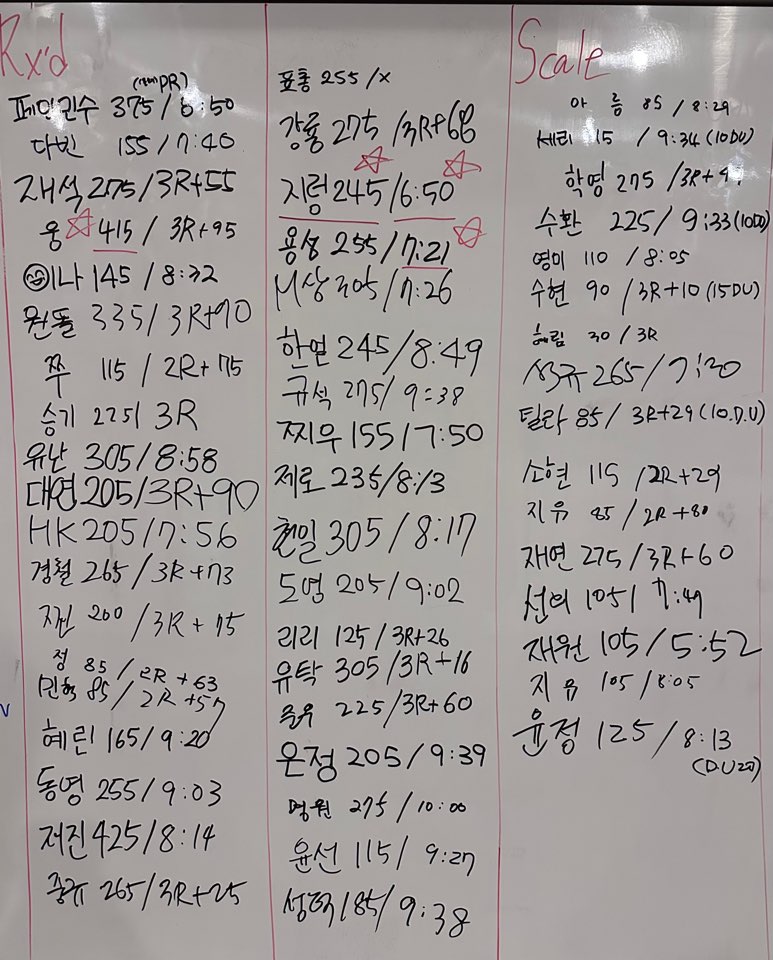 Rx'd
PR)
페인킨수 375 / 6:50
다빈 155 / 7:40
재석 275/3R+55
웅 415 / 3R+95
이나 145 / 8:32
원돌 335/ 3R+90
쭈 115 / 2R+75
승기 225/ 3R
유난 305/8:58
대연 205/3R+90
HK 205/7:56
경철 265/3R+73
200 / 3R + 75
정 85 / 2R + 63
민혁 85 / 2R +57
혜린 165/9:20
동영 255/9:03
저진 425/8:14
종규 265/3R+25
표통 255 /x
강룡 275 /3R+68
지렁 245/6:50
용성 255/7:21
305/7:26
한연 245/8:49
규석 275/ 9:38
찌우 155/7:50
제로 235/8:13
천일 305/8:17
도영 205/9:02
리리 125/3R+26
유탁 305/3R+16
225/3R+60
온정 205/9:39
명원 275/10:00
윤선 115/ 9:27
185/9:38
Scale
아름 85 / 8:29
세리 15 /9:34 (10DU)
학영 275 /3R+
수환 225/ 9:33
영미 110 / 8:05
수현 90 / 3R+10 (15DU)
혜림 30 / 3R
석규 265/7:20
틸라 85/ 3R+29 (10.D.U)
소현 115 /2R+29
지유 85/ 2R+80
재연 275/3R+60
선의 105/ 7:49
재원 105/5:52
지유 105 /8:05
윤정 125/8:13
(D.U 20)